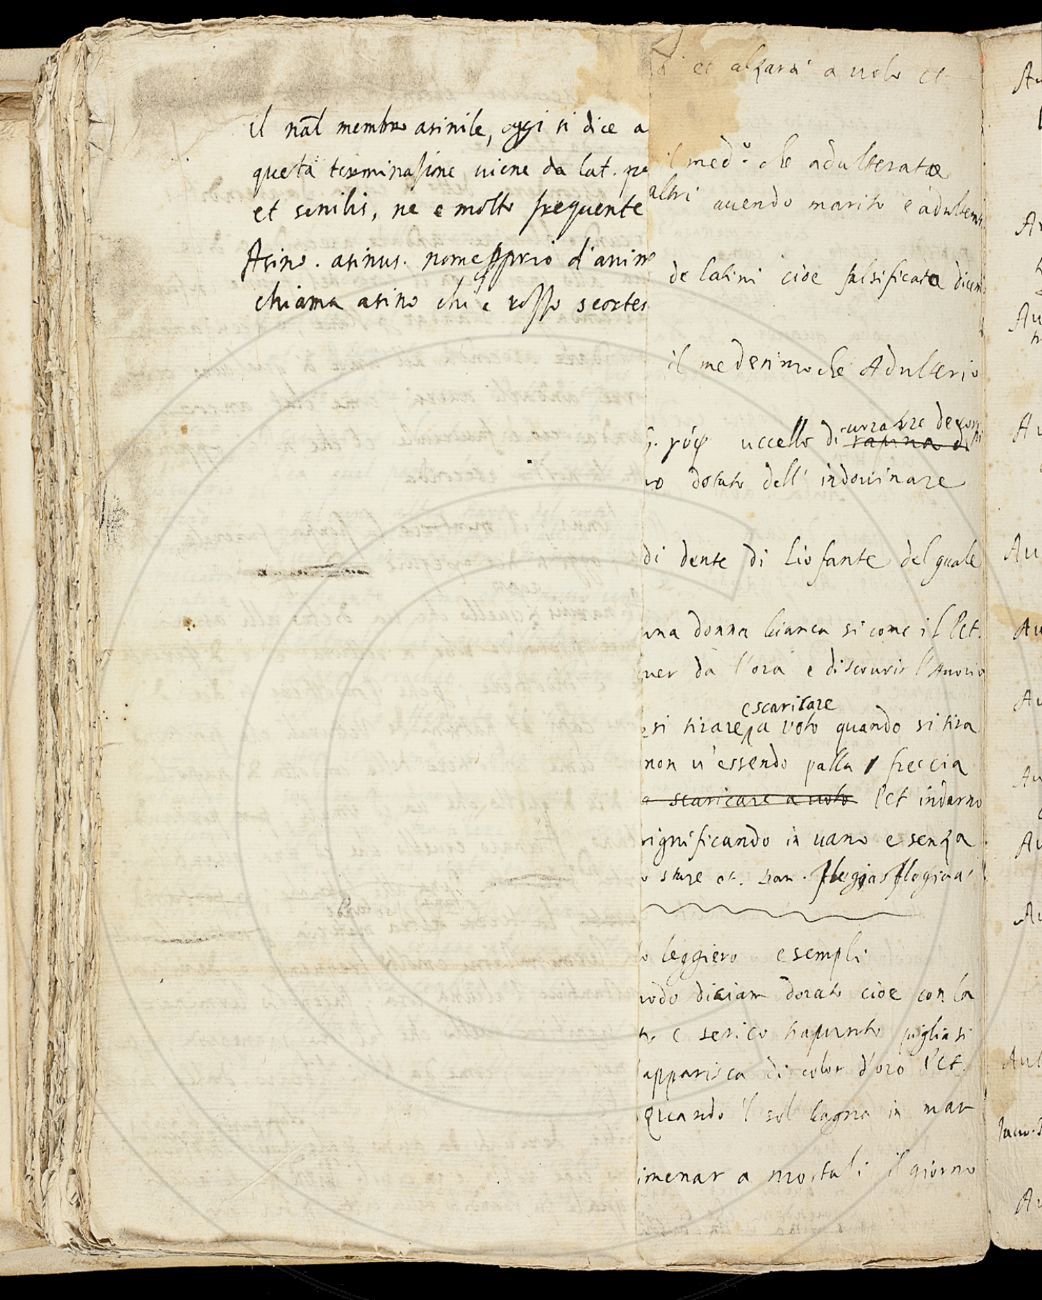 il nãl membro asinile, oggi si dice a
questa terminasione viene da lat. pu
et senilis, ne e molto frequente
Asino. asinus. nome pprio d'anim
chiama asino chi è rosso scortes
et alzarsi a uolo et
il med.º che adulterato
altri auendo marito e adultera
de latini cioe falsificata dicen
il medesimo che Adulterio
γύψ uccello di rapina di
uo dotato dell' indouinare
di dente di Liofante del quale
una donna bianca si come il Pet.
uer da l'ora e discourir l'Auorio
escaricare
si tirare a uoto quando si tira
non u'essendo palla freccia
o scaricare a uoto Pet indarno
significando in uano e senza
o stare et.
o leggiero esempli
modo diciam dorato cioe con la
e serico trapunto pigliasi
apparisca di color d'oro Pet.
Quando il sol bagna in mar
imenar a mortali il giorno
Au
Au
Au
Au
Au
Au
Au
Au
Au